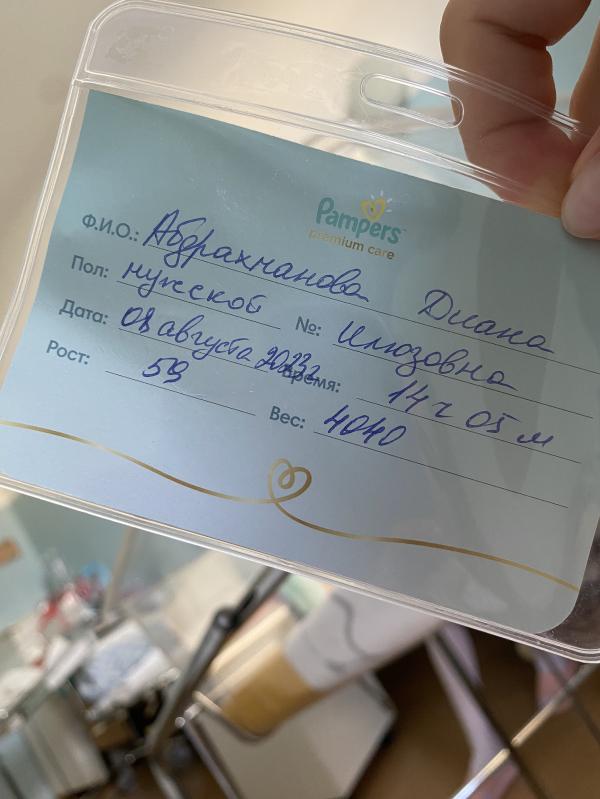 Pampers
premium care
Ф.И.О.: Абдрахманова Диана
Пол: мужской №: Илюзовна
Дата: 08 августа 2023г Время: 14 ч 05 м
Рост: 59 Вес: 4040